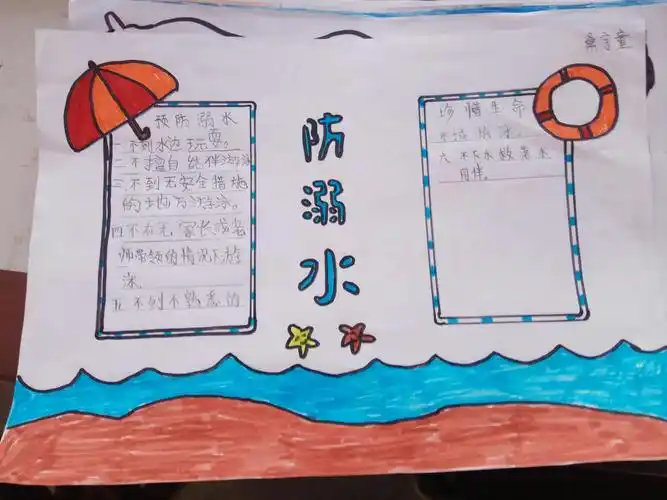 预防溺水
一不到水边玩耍。
二不擅自结伴游泳
三不到无安全措施
的地方游泳。
四不在无家长或老
师带领的情况下游
泳.
五不到不熟悉的
防
溺
水
珍惜生命
水
六不下水救落水
同伴.